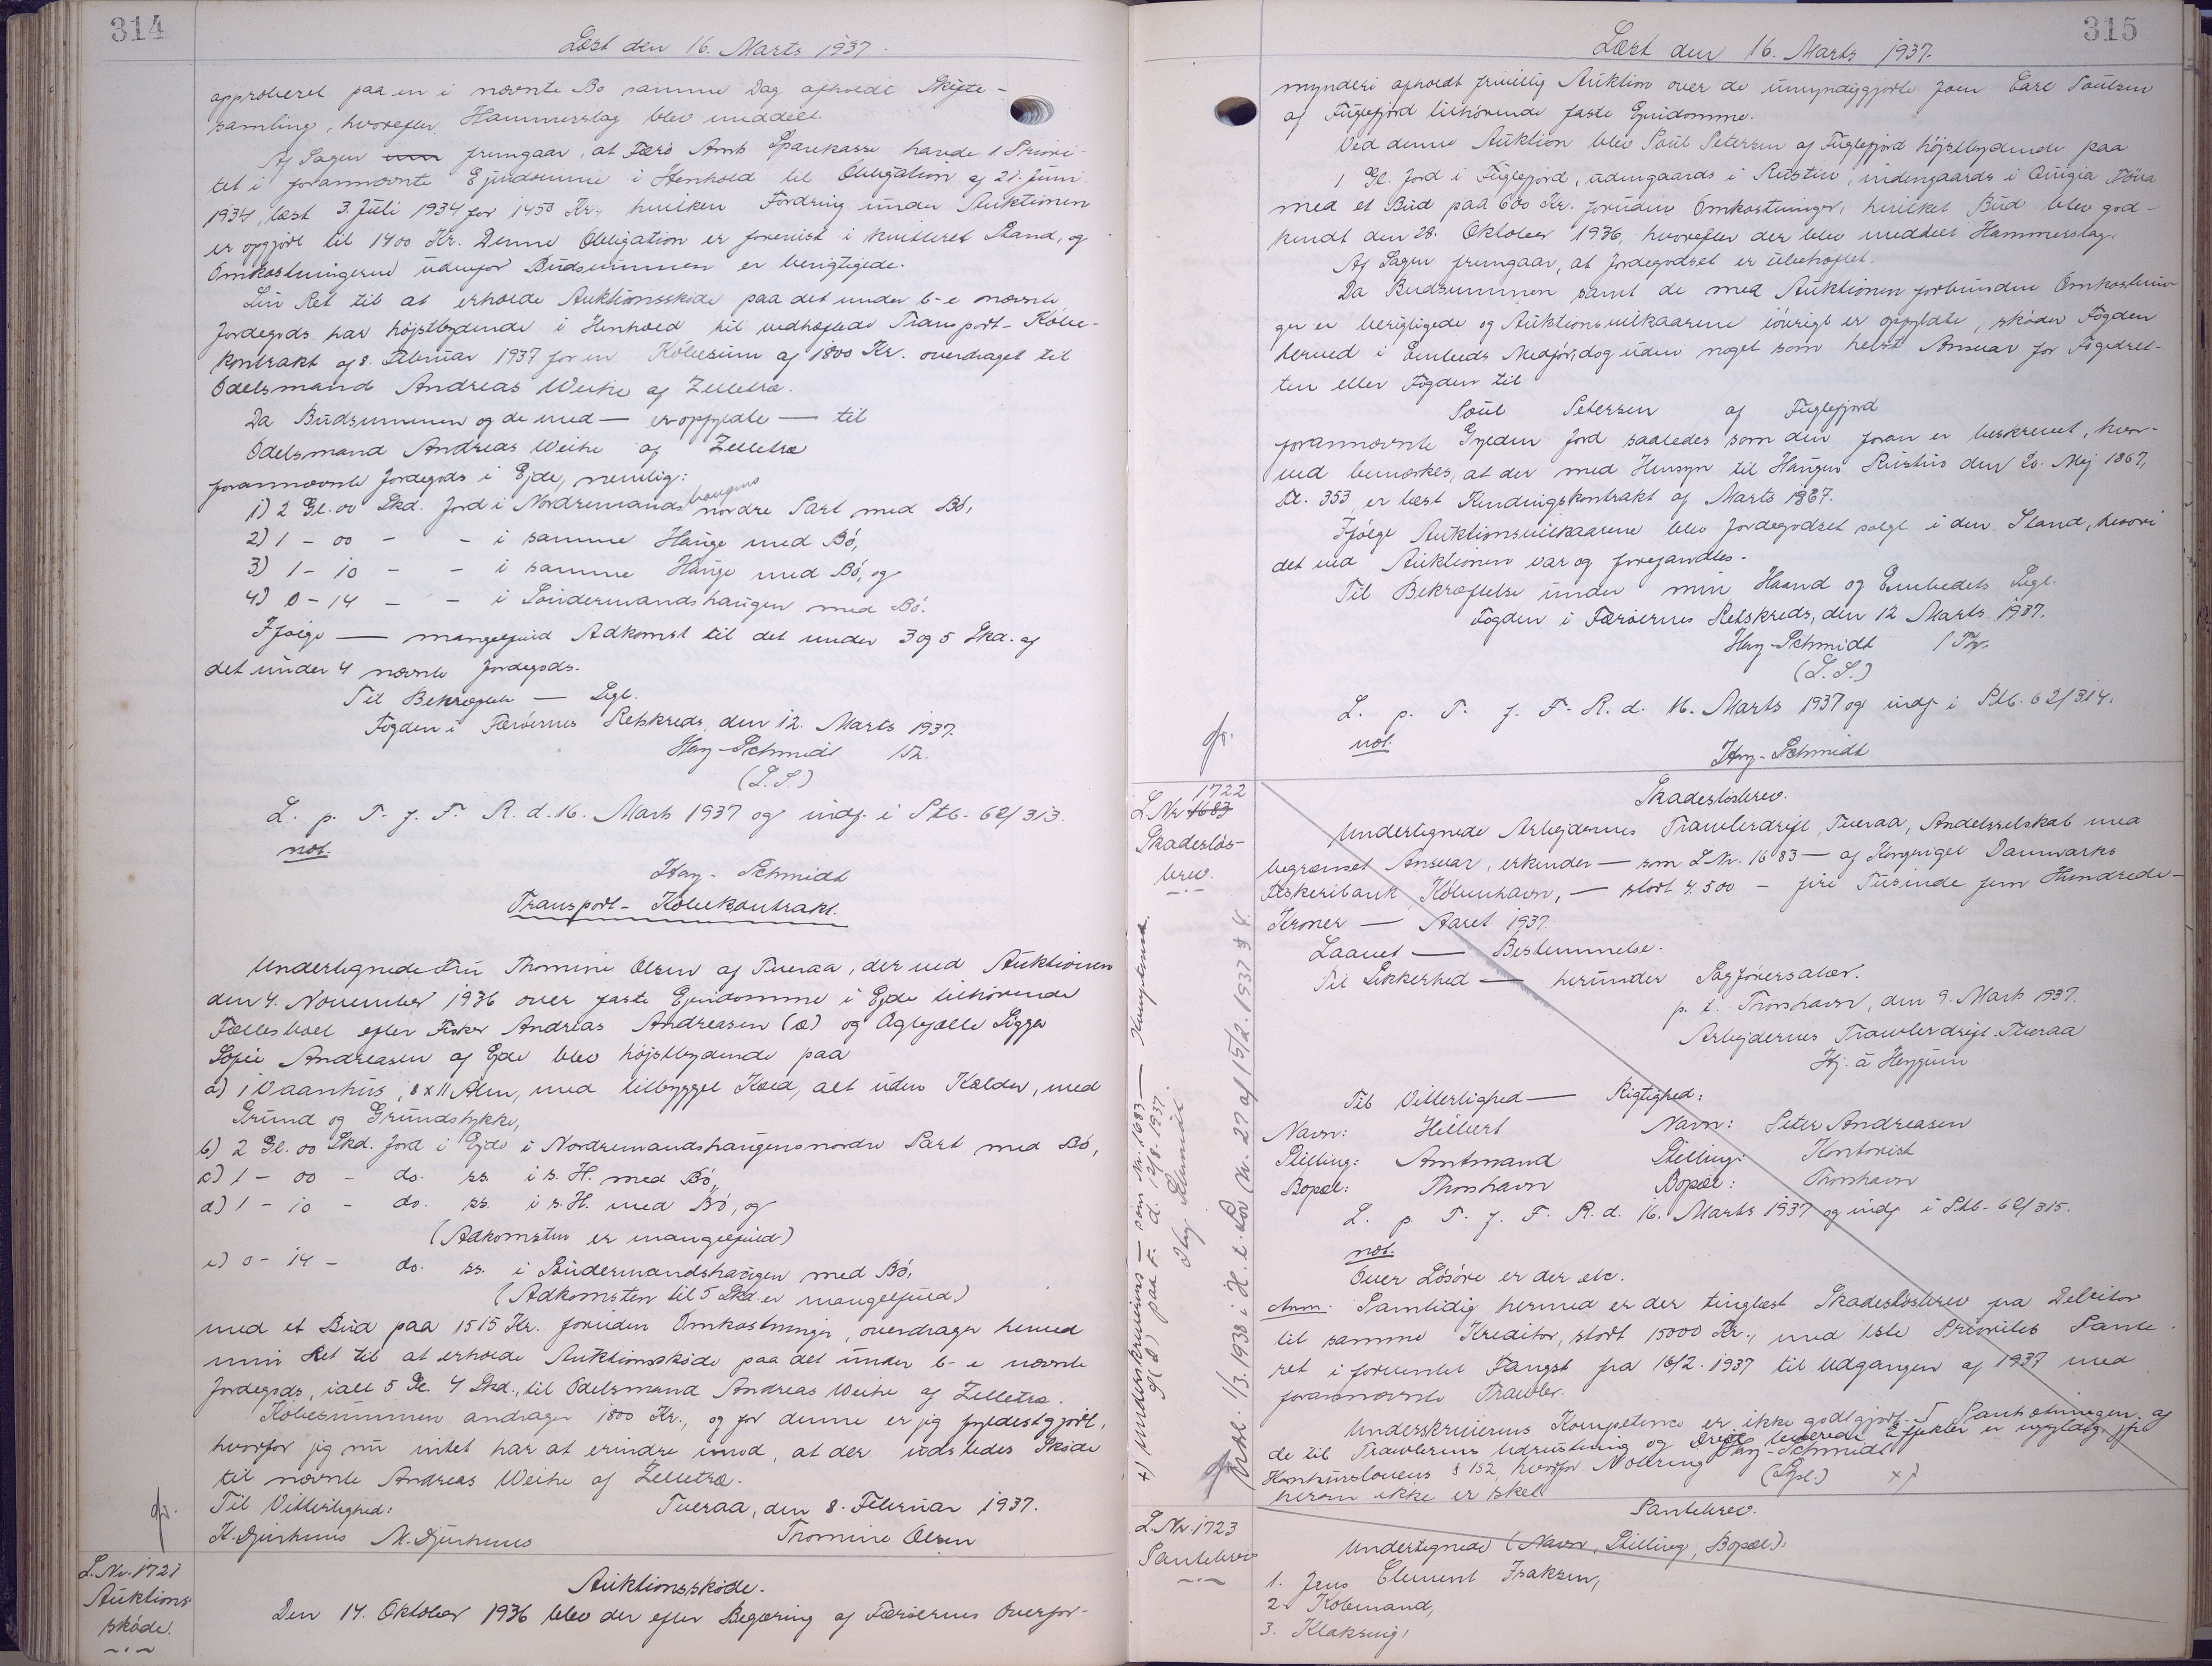 314
Læst den 16. Marts 1937.
approberet paa en i nævnte Bo samme Dag afholdt Skifte-
samling, hvorefter Hammerslag blev meddelt.
Af Sagen fremgaar, at Færø Amts Sparekasse havde 1 Priori-
tet i forannævnte Ejendomme i Henhold til Obligation af 21. Juni
1934, læst 3. Juli 1934 for 1450 Kr., hvilken Fordring under Auktionen
er opgjort til 1400 Kr. Denne Obligation er forevist i kvitteret Stand, og
Omkostningerne udenfor Budsummen er berigtigede.
Sin Ret til at erholde Auktionsskøde paa det under b-e nævnte
Jordegods har højstbydende i Henhold til vedhæftede Transport-Købe-
kontrakt af 8. Februar 1937 for en Købesum af 1800 Kr. overdraget til
Odelsmand Andreas Weihe af Zelletræ.
Da Budsummen og de med — er opfyldte — til
Odelsmand Andreas Weihe af Zelletræ
forannævnte Jordegods i Ejde, nemlig:
1) 2 Gl. 00 Skd. Jord i Nordremandshaugens nordre Part med Bø,
2) 1 - 00 - - i samme Hauge med Bø,
3) 1 - 10 - - i samme Hauge med Bø, og
4) 0 - 14 - - i Søndermandshaugen med Bø.
Ifølge — mangelfuld Adkomst til det under 3 og 5 Skd. af
det under 4 nævnte Jordegods.
Til Bekræftelse — Segl.
Fogden i Færøernes Retskreds, den 12. Marts 1937.
Hey-Schmidt
(L.S.)
L. p. T. f. F. R. d. 16. Marts 1937 og indf. i Ptb. 62/313.
not.
Hay-Schmidt
Transport-Købekontrakt.
Undertegnede Fru Thomine Olsen af Tveraa, der ved Auktionen
den 4. November 1936 over faste Ejendomme i Ejde tilhørende
Fællesboet efter Fisker Andreas Andreasen (æ) og Ægtefælle Sigga
Sofie Andreasen af Ejde blev højstbydende paa
a) 1 Vaanhus, 8 x 11 Alen, med tilbygget Kæld, alt uden Kælder, med
Grund og Grundstykke,
b) 2 Gl. 00 Skd. Jord i Ejde i Nordremandshaugens nordre Part med Bø,
c) 1 - 00 - do. ss. i s. H. med Bø,
d) 1 - 10 - do. ss. i s. H. med Bø, og
(Adkomsten er mangelfuld)
e) 0 - 14 - do. ss. i Søndermandshaugen med Bø,
(Adkomsten til 5 Skd. er mangelfuld)
med et Bud paa 1515 Kr. foruden Omkostninger, overdrager herved
min Ret til at erholde Auktionsskøde paa det under b-e nævnte
Jordegods, ialt 5 Gl. 4 Skd., til Odelsmand Andreas Weihe af Zelletræ.
Købesummen andrager 1800 Kr., og for denne er jeg fyldestgjort,
hvorfor jeg nu intet har at erindre imod, at der udstedes Skøde
til nævnte Andreas Weihe af Zelletræ.
Til Vitterlighed: Tveraa, den 8. Februar 1937.
K. Djurhuus M. Djurhuus Thomine Olsen
L.Nr. 1721
Auktions
skøde.
Auktionsskøde.
Den 14. Oktober 1936 blev der efter Begæring af Færøernes Overfor-
315
Læst den 16. Marts 1937.
mynderi afholdt frivillig Auktion over de umyndiggjorte Joen Carl Poulsen
af Fuglefjord tilhørende faste Ejendomme.
Ved denne Auktion blev Poul Petersen af Fuglefjord højstbydende paa
1 Gl. Jord i Fuglefjord, udengaards i Rustin, indengaards i
med et Bud paa 600 Kr. foruden Omkostninger, hvilket Bud blev god-
kendt den 28. Oktober 1936, hvorefter der blev meddelt Hammerslag.
Af Sagen fremgaar, at Jordegodset er ubehæftet.
Da Budsummen samt de med Auktionen forbundne Omkostnin-
ger er berigtigede og Auktionsvilkaarene iøvrigt er opfyldte, skøder Fogden
herved i Embeds Medfør, dog uden noget som helst Ansvar for Fogedret-
ten eller Fogden til
Poul Petersen af Fuglefjord
forannævnte Gylden Jord saaledes som den foran er beskrevet, hvor-
ved bemærkes, at der med Hensyn til Haugen Rustin den 20. Maj 1867,
Bl. 353, er læst Kendingskontrakt af Marts 1867.
Ifølge Auktionsvilkaarene blev Jordegodset solgt i den Stand, hvori
det ved Auktionen var og forefandtes.
Til Bekræftelse under min Haand og Embedets Segl.
Fogden i Færøernes Retskreds, den 12 Marts 1937.
Hey-Schmidt
(L.S.)
L. p. T. f. F. R. d. 16. Marts 1937 og indf. i Ptb. 62/314.
not.
Hay-Schmidt
1722
L.Nr 1683
Skadesløs-
brev.
Skadesløsbrev.
Undertegnede Arbejdernes Trawlerdrift, Tveraa, Andelsselskab med
begrænset Ansvar, erkender — som L.Nr. 1683 — af Kongeriget Danmarks
Fiskeribank, København, — stort 4.500 - fire Tusinde fem Hundrede -
Kroner — Aaret 1937.
Laanet — Bestemmelse.
Til Sikkerhed — herunder Sagførersalær.
p. t. Thorshavn, den 9. Marts 1937.
Arbejdernes Trawlerdrift Tveraa
Hj. á Heygum
Til Vitterlighed — Rigtighed:
Navn: Hilbert Navn: Peter Andreasen
Stilling: Amtmand Stilling: Kontorist
Bopæl: Thorshavn Bopæl: Thorshavn
L. p. T. f. F. R. d. 16. Marts 1937 og indf. i Ptb. 62/315.
not.
Over Løsøre er der etc.
Anm. Samtidig hermed er der tinglæst Skadesløsbrev fra Debitor
til samme Kreditor, stort 15000 Kr., med 1ste Prioritets Pante-
ret i forventet Fangst fra 16/2. 1937 til Udgangen af 1937 med
forannævnte Trawler.
Underskriverens Kompetence er ikke godtgjort. Pantsætningen af
de til Trawlerens Udrustning og Drift leverede Effekter er ugyldig, jfr.
Konkurslovens § 152, hvorfor Notering Hay-Schmidt
herom ikke er sket (Gpl.) x)
x) Underskriverens — som Nr. 1683 —
paa F. d. 12/8. 1937.
Hay Schmidt
Udsl. 1/3. 1938 i H. t. Lov Nr. 27 af 15/2. 1937 § 4.
L.Nr. 1723
Pantebrev
Pantebrev.
Undertegnede (Navn, Stilling, Bopæl):
1. Jens Clement Isaksen,
2. Købmand,
3. Klaksvig,